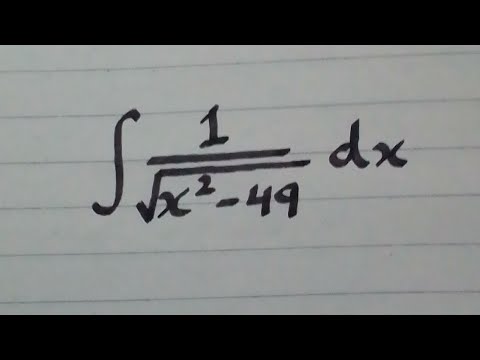 ∫ 1/√(x² - 49) dx